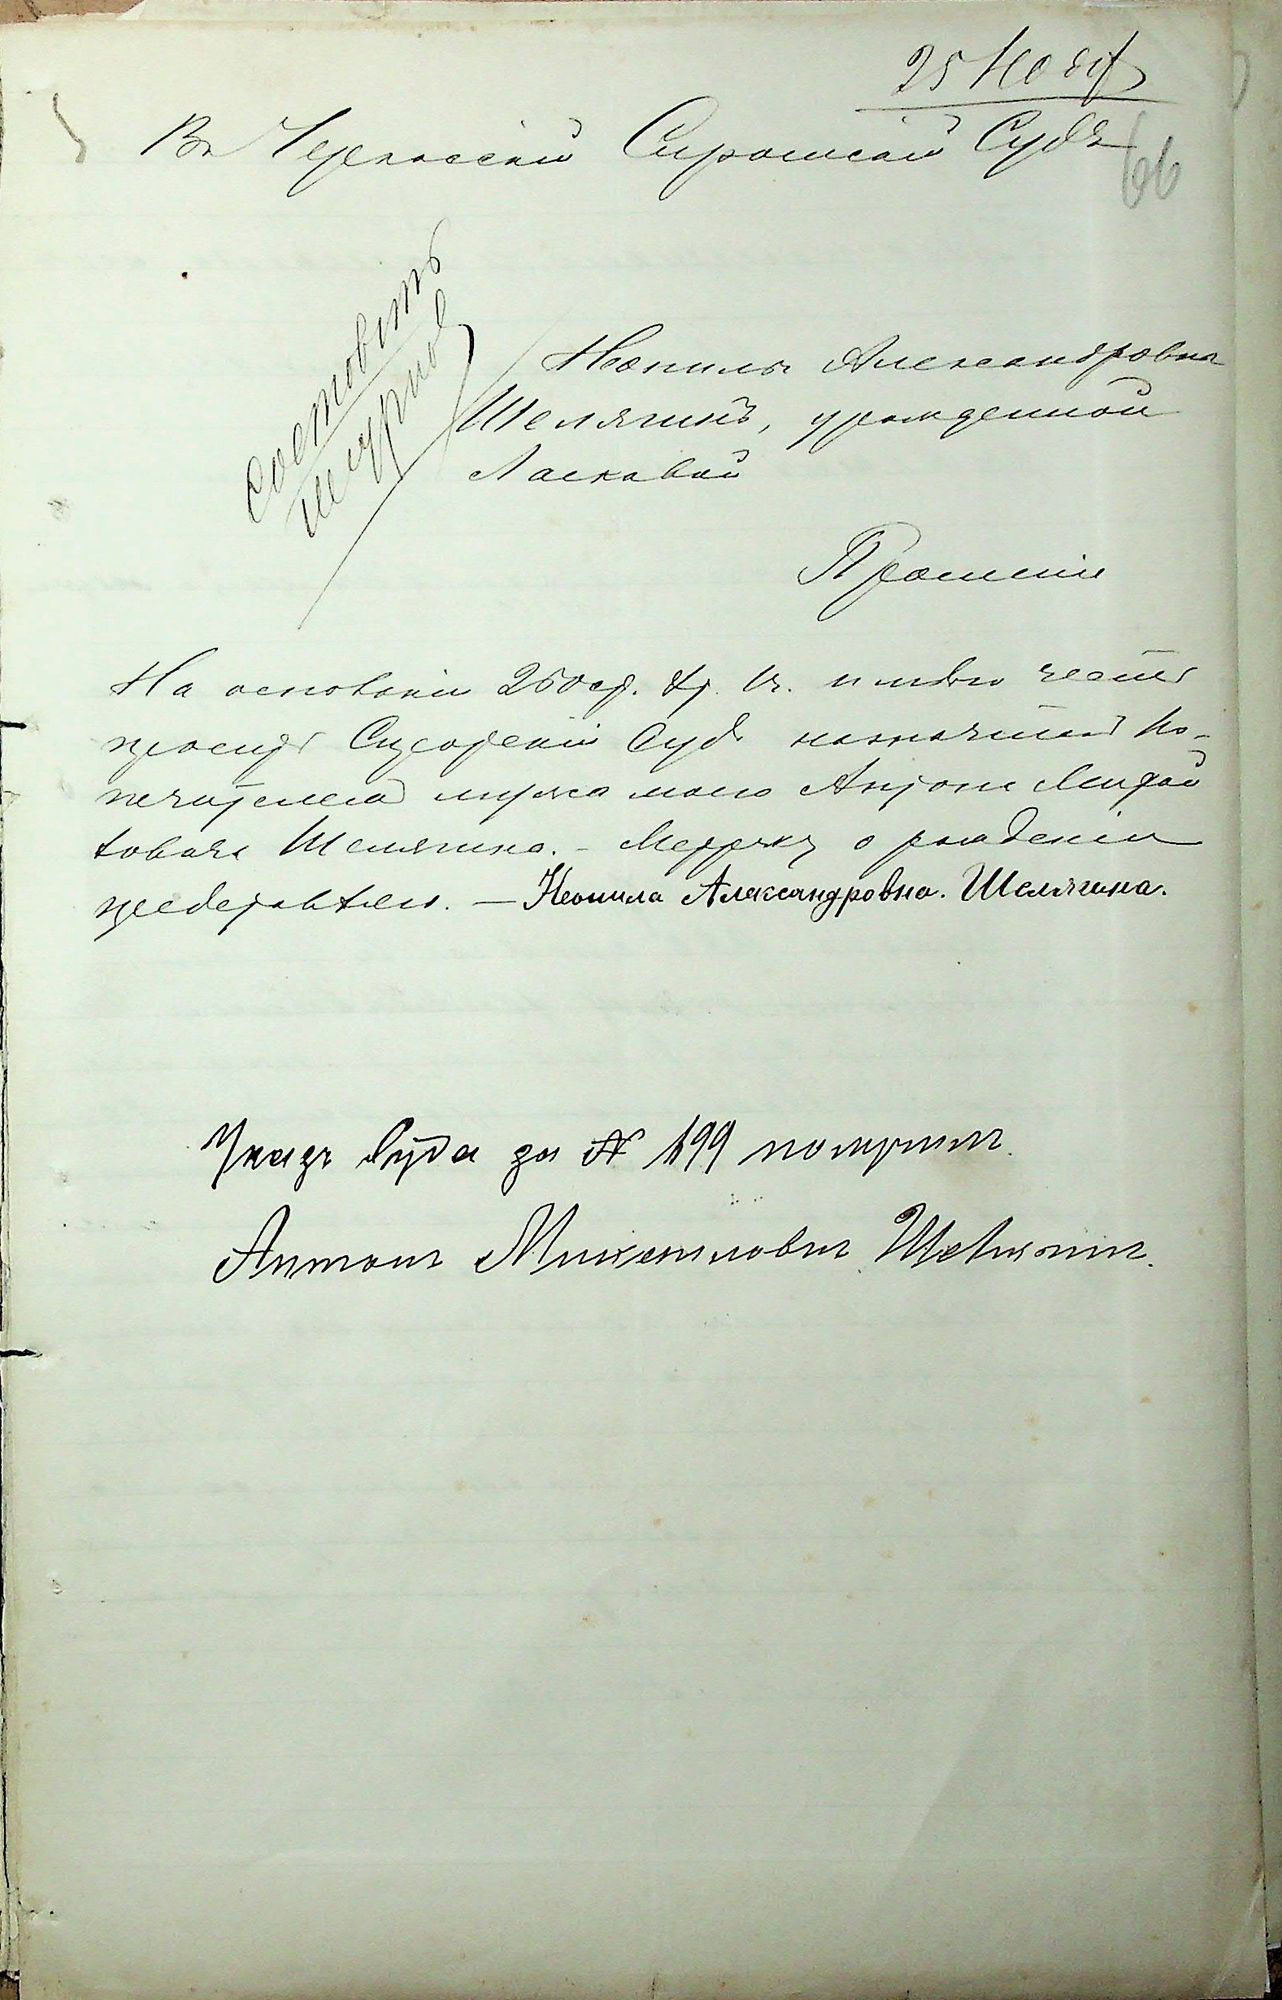 25 Нояб
66
Въ Черкасскій Сиротскій Судъ
Составить
журналъ
Неонилы Александровны
Шелягинъ, урожденной
Ласкавой
Прошеніе
На основаніи 250 ст. имѣю честь
просить Сиротскій Судъ назначить по-
печителемъ мужа моего Антона Михай
ловича Шелягина. – Метрику о рожденіи
представляю. – Неонила Александровна. Шелягина.
Указъ Суда за № 1499 получилъ.
Антонъ Михайловъ Шелягинъ.